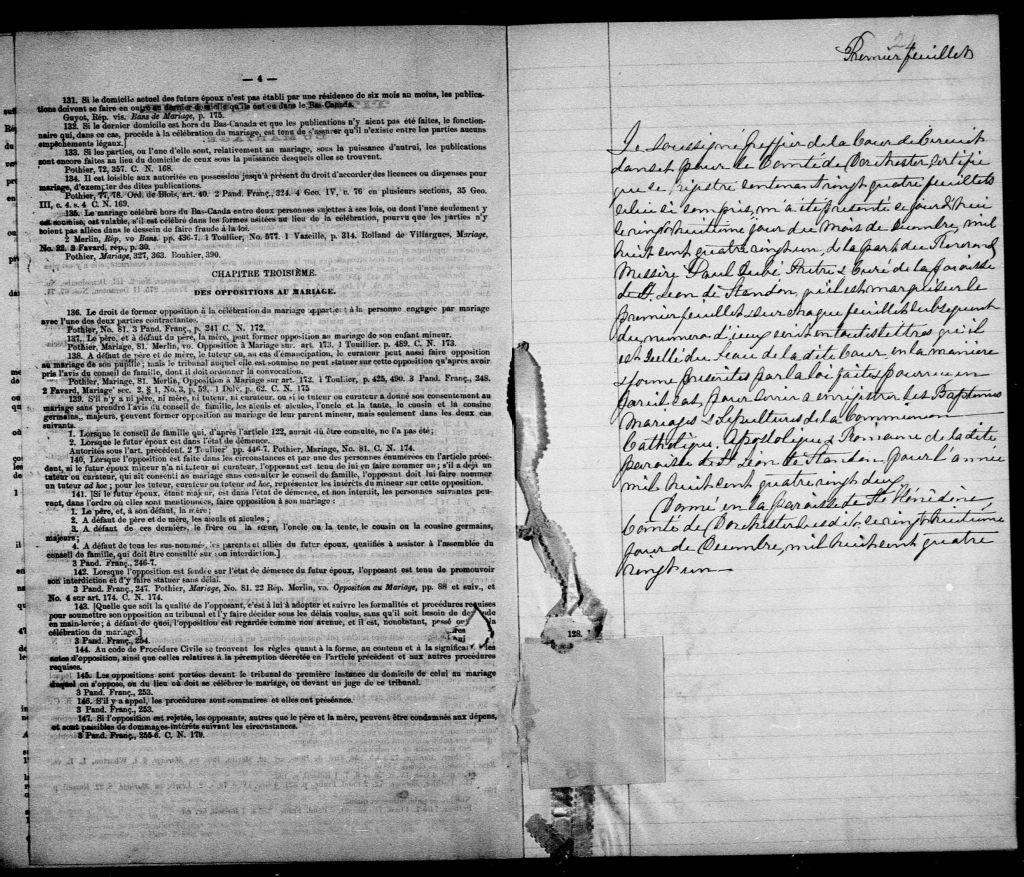 — 4 —
131. Si le domicile actuel des futurs époux n'est pas établi par une résidence de six mois au moins, les publica-
tions doivent se faire en outre au dernier domicile qu'ils ont eu dans le Bas-Canada.
Guyot, Rép. vis. Bans de Mariage, p. 175.
132. Si le dernier domicile est hors du Bas-Canada et que les publications n'y aient pas été faites, le fonction-
naire qui, dans ce cas, procède à la célébration du mariage, est tenu de s'assurer qu'il n'existe entre les parties aucuns
empêchements légaux.
133. Si les parties, ou l'une d'elles, sont, relativement au mariage, sous la puissance d'autrui, les publications
sont encore faites au lieu du domicile de ceux sous la puissance desquels elles se trouvent.
Pothier, 72, 357. C. N. 168.
134. Il est loisible aux autorités en possession jusqu'à présent du droit d'accorder les licences ou dispenses pour
mariage, d'exempter des dites publications.
Pothier, 77, 78. Ord. de Blois, art. 40. 2 Pand. Franç., 324. 4 Geo. IV, c. 76 en plusieurs sections, 35 Geo.
III, c. 4. s. 4 C. N. 169.
135. Le mariage célébré hors du Bas-Canda entre deux personnes sujettes à ses lois, ou dont l'une seulement y
est soumise, est valable, s'il est célébré dans les formes usitées au lieu de la célébration, pourvu que les parties n'y
soient pas allées dans le dessein de faire fraude à la loi.
2 Merlin, Rép, vo Bans. pp. 436-7. 1 Toullier, No. 577. 1 Vazeille, p. 314. Rolland de Villargues, Mariage,
No. 22. 3 Favard, rép., p. 30.
Pothier, Mariage, 327, 363. Bouhier, 390.
CHAPITRE TROISIÈME.
DES OPPOSITIONS AU MARIAGE.
136. Le droit de former opposition à la célébration du mariage appartient à la personne engagée par mariage
avec l'une des deux parties contractantes.
Pothier, No. 81. 3 Pand. Franç., p. 241 C. N. 172.
137. Le père, et à défaut du père, la mère, peut former opposition au mariage de son enfant mineur.
Pothier, Mariage, 81. Merlin, vo. Opposition à Mariage sur. art. 173. 1 Touillier. p. 489. C. N. 173.
138. A défaut de père et de mère, le tuteur ou, au cas d'émancipation, le curateur peut aussi faire opposition
au mariage de son pupille; mais le tribunal auquel elle est soumise ne peut statuer sur cette opposition qu'après avoir
pris l'avis du conseil de famille, dont il doit ordonner la convocation.
Pothier, Mariage, 81. Merlin, Opposition à Mariage sur art. 172. 1 Toullier, p. 425, 490. 3 Pand. Franç., 248.
2 Favard, Mariage' sec. 2, § 1, No. 3, p. 59. 1 Delv., p. 62. C. N. 175
139. S'il n'y a ni père, ni mère, ni tuteur, ni curateur, ou si le tuteur ou curateur a donné son consentement au
mariage sans prendre l'avis du conseil de famille, les aïeuls et aïeules, l'oncle et la tante, le cousin et la cousine
germains, majeurs, peuvent former opposition au mariage de leur parent mineur, mais seulement dans les deux cas
suivants.
1. Lorsque le conseil de famille qui, d'après l'article 122, aurait dû être consulté, ne l'a pas été;
2. Lorsque le futur époux est dans l'état de démence.
Autorités sous l'art. précédent. 2 Toullier pp. 446-7. Pothier, Mariage, No. 81. C. N. 174.
140. Lorsque l'opposition est faite dans les circonstances et par une des personnes énumérées en l'article précé-
dent, si le futur époux mineur n'a ni tuteur ni curateur, l'opposant est tenu de lui en faire nommer un; s'il a déjà un
tuteur ou curateur, qui ait consenti au mariage sans consulter le conseil de famille, l'opposant doit lui faire nommer
un tuteur ad hoc; pour les tuteur, curateur ou tuteur ad hoc, représenter les intérêts du mineur sur cette opposition.
141. [Si le futur époux, étant majeur, est dans l'état de démence, et non interdit, les personnes suivantes peu-
vent, dans l'ordre où elles sont mentionnées, faire opposition à son mariage:
1. Le père, et, à son défaut, la mère;
2. A défaut de père et de mère, les aïeuls et aïeules;
3. A défaut de ces derniers, le frère ou la sœur, l'oncle ou la tante, le cousin ou la cousine germains,
majeurs;
4. A défaut de tous les sus-nommés, les parents et alliés du futur époux, qualifiés à assister à l'assemblée du
conseil de famille, qui doit être consulté sur son interdiction.]
3 Pand. Franç., 246-7.
142. Lorsque l'opposition est fondée sur l'état de démence du futur époux, l'opposant est tenu de promouvoir
son interdiction et d'y faire statuer sans délai.
3 Pand. Franç., 247. Pothier, Mariage, No. 81. 22 Rép. Merlin, vo. Opposition au Mariage, pp. 88 et suiv., et
No. 4 sur art. 174. C. N. 174.
143. [Quelle que soit la qualité de l'opposant, c'est à lui à adopter et suivre les formalités et procédures requises
pour soumettre son opposition au tribunal et l'y faire décider sous les délais voulus, sans qu'il soit besoin de demande
en main-levée; à défaut de quoi, l'opposition est regardée comme non avenue, et il est, nonobstant, passé la
célébration du mariage.]
3 Pand. Franç., 254.
144. Au code de Procédure Civile se trouvent les règles quant à la forme, au contenu et à la les
actes d'opposition, ainsi que celles relatives à la péremption décrétée en l'article précédent et aux autres procédures
requises.
145. Les oppositions sont portées devant le tribunal de première instance du domicile de celui au mariage
duquel on s'oppose, ou du lieu où doit se célébrer le mariage, ou devant un juge de ce tribunal.
3 Pand. Franç., 253.
146. S'il y a appel, les procédures sont sommaires et elles ont préséance.
3 Pand. Franç., 253.
147. Si l'opposition est rejetée, les opposants, autres que le père et la mère, peuvent être condamnés aux dépens,
et sont passibles de dommages-intérêts suivant les circonstances.
3 Pand. Franç., 255-6. C. N. 179.
128.
Premier feuillet
Je Soussigné greffier de la Cour de Circuit
dans et pour le Comté de Dorchester certifie
que ce régistre contenant vingt quatre feuillets
celui si compris, m'a été présenté ce jourd'hui
le vingt huitième jour du mois de Décembre, mil
huit cent quatre vingt un, de la part du Révérend
Messire Paul Dubé Prêtre & Curé de la paroisse
de St. Léon de Standon, qu'il est marqué sur le
premier feuillet & sur chaque feuillet subséquent
du numéro d'iceux écrit en toutes lettres qu'il
est scellé du sceau de la dite Cour, en la manière
& forme préscrites par la loi faite & pourvue en
pareil cas, pour servir à enregistrer les Baptêmes
Mariages & Sépultures de la Communion
Catholique, Apostolique & Romaine de la dite
paroisse de St. Léon de Standon pour l'année
mil huit cent quatre vingt deux
Donné en la paroisse de Ste Hénédine
Comté de Dorchester les dits, ce vingt huitième
jour de Décembre, mil huit cent quatre
vingt un —